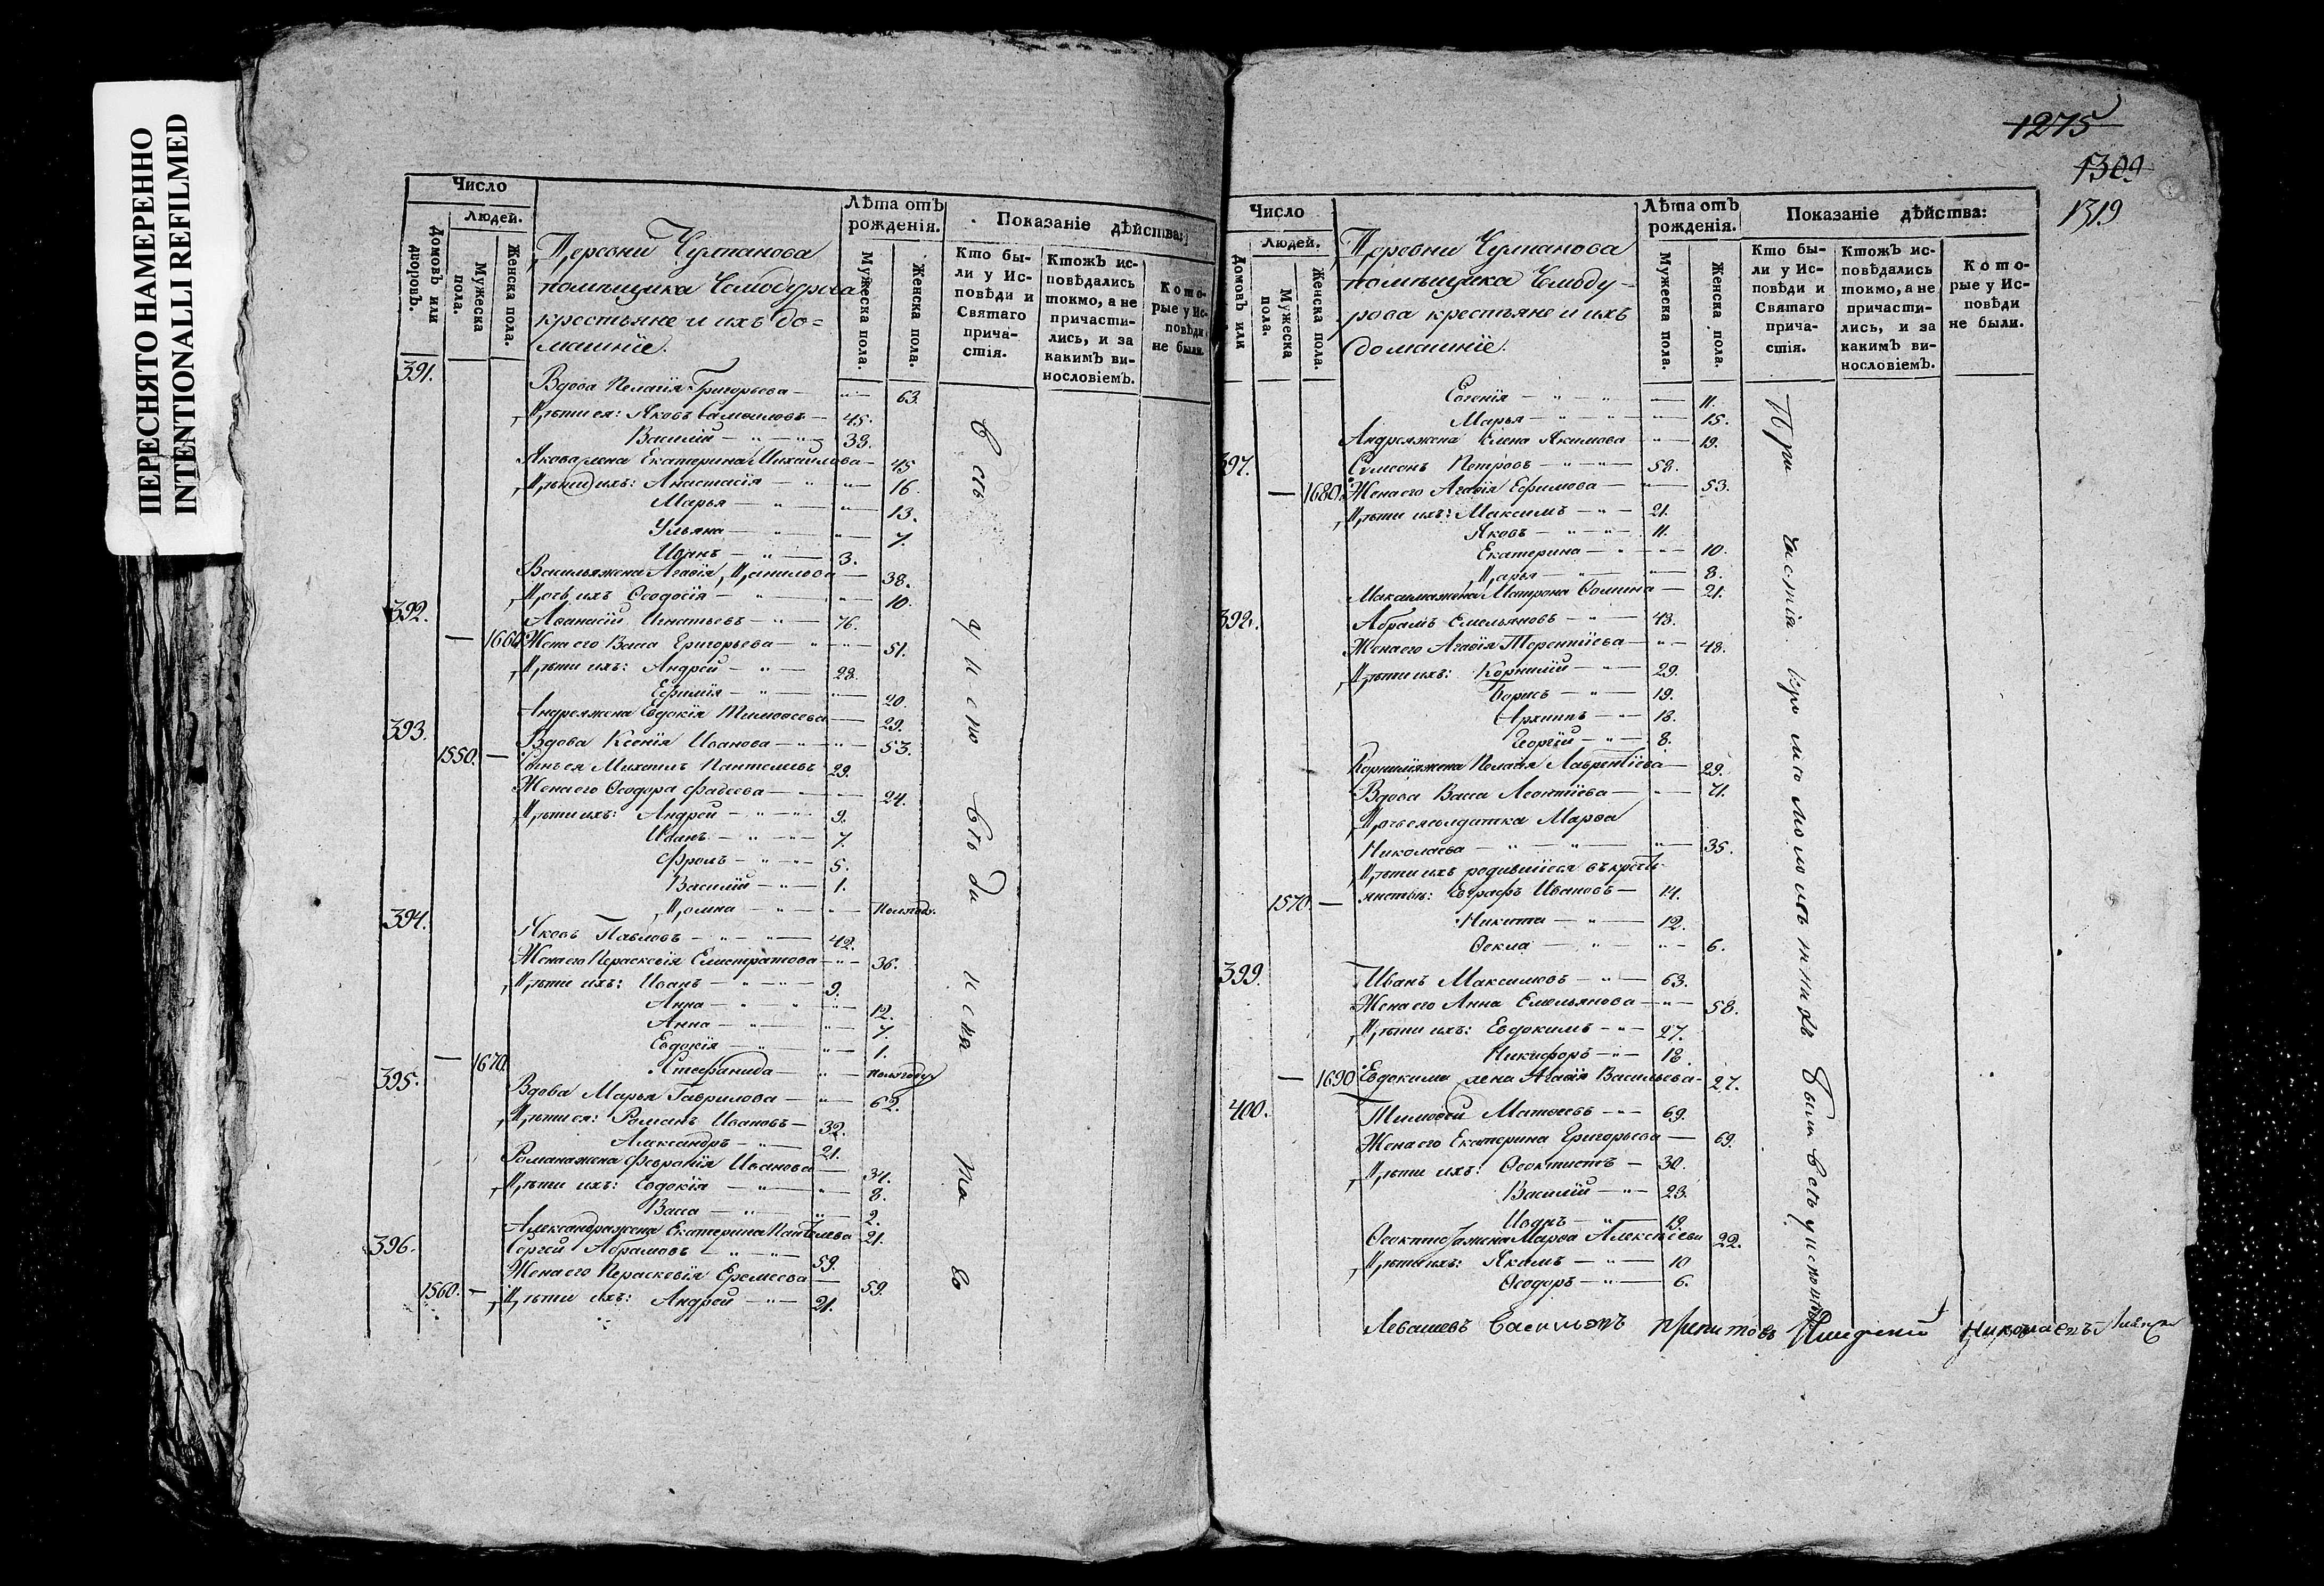 ПЕРЕСНЯТО НАМЕРЕННО
INTENTIONALLI REFILMED
Число
Людей.
Домовъ или дворовъ.
Мужеска пола.
Женска пола.
Деревни Чулпанова
помѣщика
крестьяне и ихъ до=
машніе.
Лѣта отъ рожденія.
Мужеска пола.
Женска пола.
Показаніе дѣйства:
Кто были у Исповѣди и Святаго причастія.
Ктожъ исповѣдались токмо, а не причастились, и за какимъ винословіемъ.
Которые у Исповѣди не были.
391. Вдова Пелагія Григорьева — 63.
Дѣти ея: Яковъ Самойловъ — 45.
Василій — 33.
Якова жена Екатерина Михайлова — 45
Дѣти ихъ: Анастасія — 16.
Марья — 13.
Ульяна — 7.
Иванъ — 3.
Василья жена Агафія Данилова — 38.
Дочь их Ѳеодосія — 10.
392. Аѳанасій Игнатьевъ — 76.
— 1660 Жена его Васса Григорьева — 51.
Дѣти ихъ: Андрей — 28.
Ефимія — 20.
Андрея жена Евдокія Тимоѳеева — 29.
393. Вдова Ксенія Иванова — 53.
1550. — Сынъ ея Михаилъ Пантелеевъ 29.
Жена его Ѳеодора Фадеева — 24.
Дѣти ихъ: Андрей — 9.
Иванъ — 7.
Фролъ — 5.
Василій — 1.
Домна — полгода.
394. Яковъ Павловъ — 42.
Жена его Параскевія Елистратова — 36.
Дѣти ихъ: Иванъ — 9.
Анна — 12.
Анна — 7.
Евдокія — 1.
— 1670. Степанида — полгода
395. Вдова Марья Гаврилова — 62.
Дѣти ея: Романъ Ивановъ — 32.
Александръ — 21.
Романа жена Февронія Иванова — 34.
Дѣти ихъ: Евдокія — 8.
Васса — 2.
Александра жена Екатерина 21.
396. Сергей Абрамовъ — 59.
Жена его Параскевія Еремеева — 59.
1560. — Дѣти ихъ: Андрей — 21.
1275
1309
1319
Число
Людей.
Домовъ или
Мужеска пола.
Женска пола.
Деревни Чулпанова
помѣщика
крестьяне и ихъ
домашніе.
Лѣта отъ рожденія.
Мужеска пола.
Женска пола.
Показаніе дѣйства:
Кто были у Исповѣди и Святаго причастія.
Ктожъ исповѣдались токмо, а не причастились, и за какимъ винословіемъ.
Которые у Исповѣди не были.
Евгенія — 11.
Марья — 15.
Андрея жена Елена Якимова — 19.
397. Симеонъ Петровъ — 58.
— 1680. Жена его Агафія Ефимова — 53.
Дѣти ихъ: Максимъ — 21.
Яковъ — 11.
Екатерина — 10.
Дарья — 8.
Максима жена Матрона Ѳомина — 21.
392. Абрамъ Емельяновъ — 43.
Жена его Агафія Терентіева — 48.
Дѣти ихъ: Корнилій — 29.
Борисъ — 19.
Архипъ — 13.
Георгій — 8.
Корнилія жена Пелагія Лаврентіева — 29.
Вдова Васса Леонтіева — 71.
Дочь ея солдатка Марѳа
Николаева — 35.
Дѣти ихъ родившіеся въ крестьянствѣ:
1570. — Евграфъ Ивановъ — 14.
Никита — 12.
Ѳекла — 6.
399. Иванъ Максимовъ — 63.
Жена его Анна Емельянова — 58.
Дѣти ихъ: Евдокимъ — 27.
Никифоръ — 18
— 1690 Евдокима жена Агафія Васильева — 27.
400. Тимоѳей Матвеевъ — 69.
Жена его Екатерина Григорьева — 69.
Дѣти ихъ: Ѳеоктистъ — 30.
Василій — 23.
Иванъ — 19.
Ѳеоктиста жена Марѳа Алексѣева 22.
Дѣти ихъ: Якимъ — 10
Ѳеодоръ — 6.